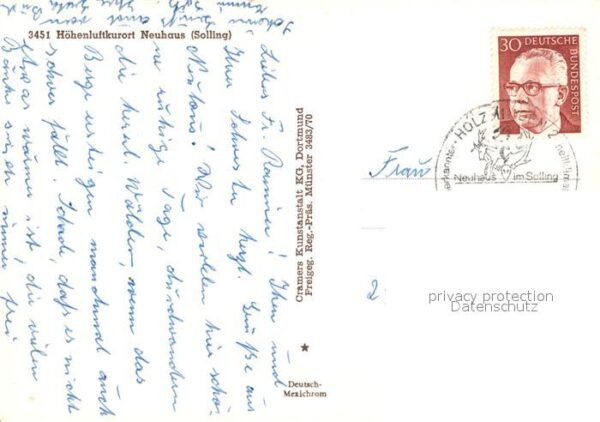 3451 Höhenluftkurort Neuhaus (Solling)
Liebe Fr. Ranien! Ihnen und
Ihrer Tochter herzl. Grüße aus
Neuhaus! Wir verleben hier schö-
ne ruhige Tage, durchwandern
die herrl. Wälder, wenn das
Berge ersteigen manchmal auch
schwer fällt. Schade, daß es nicht
etwas wärmer ist, die vielen
Bänke sind immer frei
Cramers Kunstanstalt KG, Dortmund
Freigeg. Reg.-Präs. Münster 3483/70
Deutsch-
Mexichrom
30 DEUTSCHE
BUNDESPOST
HOLZMINDEN 2
Neuhaus im Solling
Frau
2
privacy protection
Datenschutz